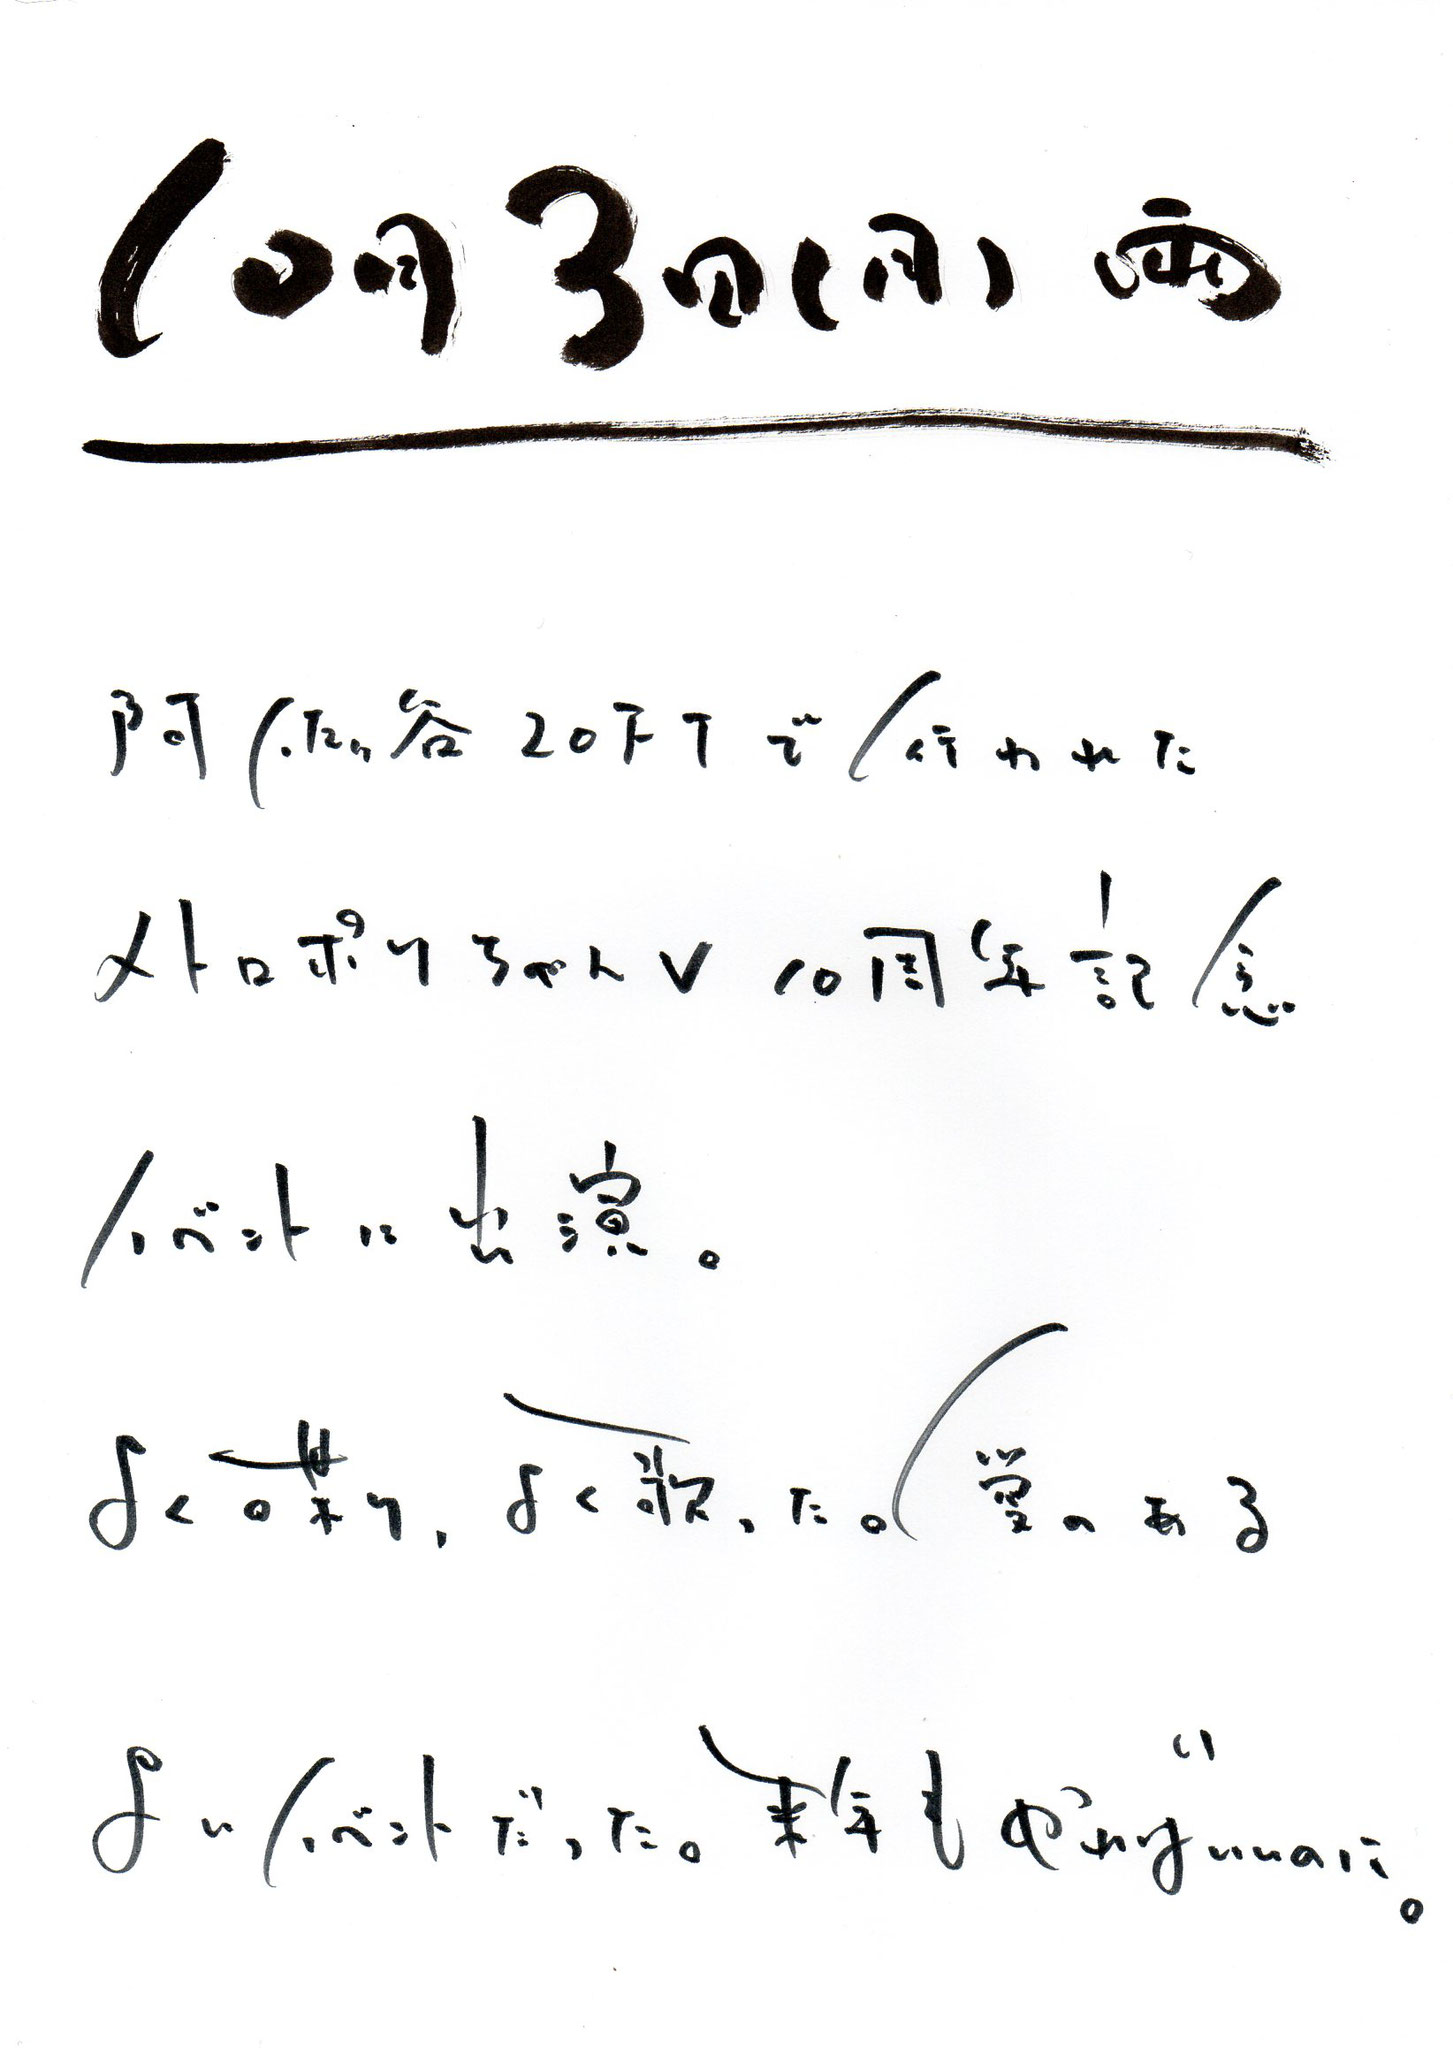 10月3日(月) 雨
阿佐ヶ谷 20FTで行われた
メトロポリちゃんV 10周年記念
イベントに出演。
よく喋り、よく歌った。愛のある
よいイベントだった。来年もやればいいのに。